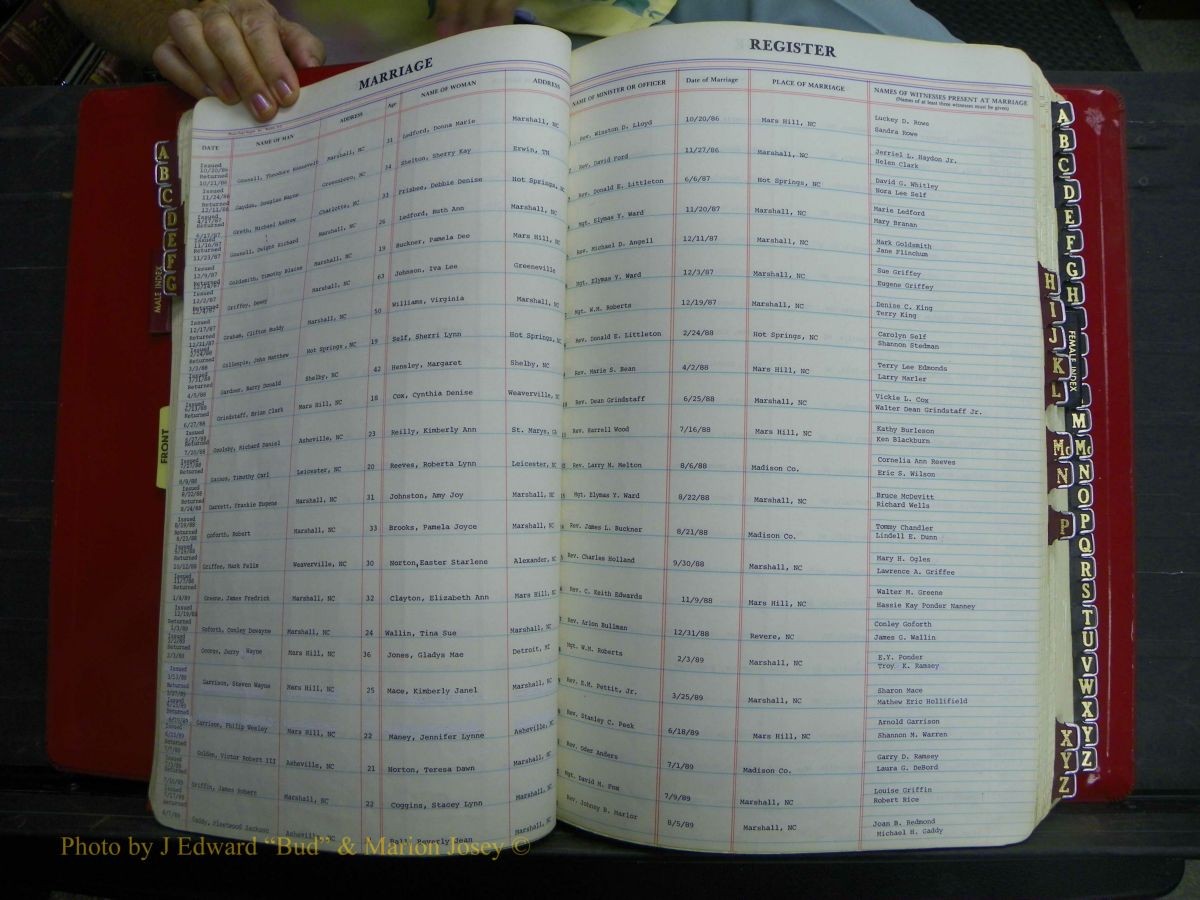 MARRIAGE
DATE NAME OF MAN ADDRESS Age NAME OF WOMAN ADDRESS
Issued 10/20/86 Returned 10/21/86 Gosnell, Theodore Roosevelt Marshall, NC 31 Ledford, Donna Marie Marshall, NC
Issued 11/24/86 Returned 12/11/86 Haydon, Douglas Wayne Greensboro, NC 34 Shelton, Sherry Kay Erwin, TN
Greth, Michael Andrew Charlotte, NC 33 Frisbee, Debbie Denise Hot Springs, NC
Issued 11/16/87 Returned 11/23/87 Gosnell, Dwight Richard Marshall, NC 26 Ledford, Ruth Ann Marshall, NC
Issued 12/9/87 Returned Goldsmith, Timothy Blaine Marshall, NC 19 Buckner, Pamela Dee Mars Hill, NC
Issued 12/2/87 Returned Griffey, Dewey Marshall, NC 63 Johnson, Iva Lee Greeneville
Issued 12/17/87 Returned 12/21/87 Graham, Clifton Buddy Marshall, NC 50 Williams, Virginia Marshall, NC
Returned 3/3/88 Gillespie, John Matthew Hot Springs, NC 19 Self, Sherri Lynn Hot Springs, NC
Issued Returned 4/5/88 Gardner, Barry Donald Shelby, NC 42 Hensley, Margaret Shelby, NC
Issued Returned 6/27/88 Grindstaff, Brian Clark Mars Hill, NC 18 Cox, Cynthia Denise Weaverville, NC
Issued Returned Goolsby, Richard Daniel Asheville, NC 23 Reilly, Kimberly Ann St. Marys,
Issued Returned 8/9/88 Timothy Carl Leicester, NC 20 Reeves, Roberta Lynn Leicester, NC
Issued 8/22/88 Returned 8/24/88 Garrett, Frankie Eugene Marshall, NC 31 Johnston, Amy Joy Marshall, NC
Issued 8/19/88 Returned 8/23/88 Goforth, Robert Marshall, NC 33 Brooks, Pamela Joyce Marshall, NC
Issued Returned 10/12/88 Griffee, Mark Felix Weaverville, NC 30 Norton, Easter Starlene Alexander, NC
Issued 11/7/88 Returned Greene, James Fredrich Marshall, NC 32 Clayton, Elizabeth Ann Mars Hill, NC
Issued 12/19/88 Returned 1/3/89 Goforth, Conley Dewayne Marshall, NC 24 Wallin, Tina Sue Marshall, NC
Issued Returned George, Jerry Wayne Mars Hill, NC 36 Jones, Gladys Mae Detroit, MI
Issued Returned Garrison, Steven Wayne Mars Hill, NC 25 Mace, Kimberly Janel Marshall, NC
Issued Returned Garrison, Philip Wesley Mars Hill, NC 22 Maney, Jennifer Lynne Asheville, NC
Issued Returned Golden, Victor Robert III Asheville, NC 21 Norton, Teresa Dawn Marshall, NC
Issued Returned Griffin, James Robert Marshall, NC 22 Coggins, Stacey Lynn Marshall, NC
Issued Returned Gaddy, Fleetwood Jackson Asheville, NC Ball, Beverly Jean Marshall, NC
REGISTER
NAME OF MINISTER OR OFFICER Date of Marriage PLACE OF MARRIAGE NAMES OF WITNESSES PRESENT AT MARRIAGE
(Names of at least three witnesses must be given)
Rev. Winston D. Lloyd 10/20/86 Mars Hill, NC Luckey D. Rowe
Sandra Rowe
Rev. David Ford 11/27/86 Marshall, NC Jerriel L. Haydon Jr.
Helen Clark
Rev. Donald E. Littleton 6/6/87 Hot Springs, NC David G. Whitley
Nora Lee Self
Mgt. Elymas Y. Ward 11/20/87 Marshall, NC Marie Ledford
Mary Branan
Rev. Michael D. Angell 12/11/87 Marshall, NC Mark Goldsmith
Jane Flinchum
Mgt. Elymas Y. Ward 12/3/87 Marshall, NC Sue Griffey
Eugene Griffey
Mgt. W.M. Roberts 12/19/87 Marshall, NC Denise C. King
Terry King
Rev. Donald E. Littleton 2/24/88 Hot Springs, NC Carolyn Self
Shannon Stedman
Rev. Marie S. Bean 4/2/88 Mars Hill, NC Terry Lee Edmonds
Larry Marler
Rev. Dean Grindstaff 6/25/88 Marshall, NC Vickie L. Cox
Walter Dean Grindstaff Jr.
Rev. Harrell Wood 7/16/88 Mars Hill, NC Kathy Burleson
Ken Blackburn
Rev. Larry H. Melton 8/6/88 Madison Co. Cornelia Ann Reeves
Eric S. Wilson
Mgt. Elymas Y. Ward 8/22/88 Marshall, NC Bruce McDevitt
Richard Wells
Rev. James L. Buckner 8/21/88 Madison Co. Tommy Chandler
Lindell E. Dunn
Rev. Charles Holland 9/30/88 Marshall, NC Mary H. Ogles
Lawrence A. Griffee
Rev. C. Keith Edwards 11/9/88 Mars Hill, NC Walter M. Greene
Hassie Kay Ponder Nanney
Rev. Arlon Bullman 12/31/88 Revere, NC Conley Goforth
James G. Wallin
Mgt. W.M. Roberts 2/3/89 Marshall, NC E.Y. Ponder
Troy K. Ramsey
Rev. E.M. Pettit, Jr. 3/25/89 Marshall, NC Sharon Mace
Mathew Eric Hollifield
Rev. Stanley C. Peek 6/18/89 Mars Hill, NC Arnold Garrison
Shannon M. Warren
Rev. Oder Anders 7/1/89 Madison Co. Garry D. Ramsey
Laura G. DeBord
Mgt. David M. Fox 7/9/89 Marshall, NC Louise Griffin
Robert Rice
Rev. Johnny B. Marlor 8/5/89 Marshall, NC Joan B. Redmond
Michael H. Gaddy
A
B
C
D
E
F
G
MALE INDEX
FRONT
A
B
C
D
E
F
G
H
FEMALE INDEX
M
Mc
N
O
P
Q
R
S
T
U
V
W
X
Y
Z
H
I
J
K
L
Mc
N
P
X
Y
Z
Photo by J Edward “Bud” & Marion Josey ©